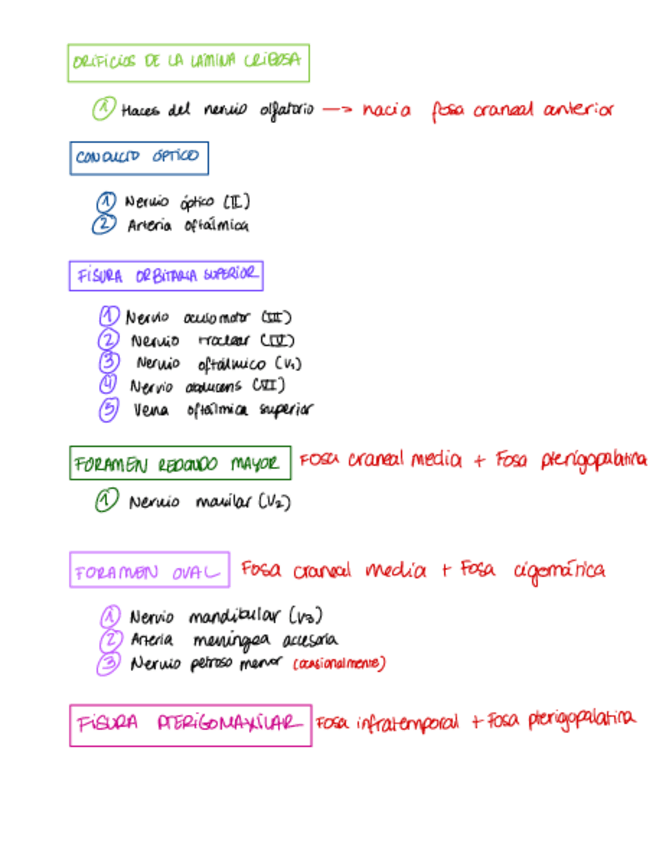 ORIFICIOS DE LA LÁMINA CRIBOSA
1 Haces del nervio olfatorio —> hacia fosa craneal anterior
CONDUCTO ÓPTICO
1 Nervio óptico (II)
2 Arteria oftálmica
FISURA ORBITARIA SUPERIOR
1 Nervio oculomotor (III)
2 Nervio troclear (IV)
3 Nervio oftálmico (V1)
4 Nervio abducens (VI)
5 Vena oftálmica superior
FORAMEN REDONDO MAYOR Fosa craneal media + Fosa pterigopalatina
1 Nervio maxilar (V2)
FORAMEN OVAL Fosa craneal media + Fosa cigomática
1 Nervio mandibular (V3)
2 Arteria meníngea accesoria
3 Nervio petroso menor (ocasionalmente)
FISURA PTERIGOMAXILAR Fosa infratemporal + Fosa pterigopalatina